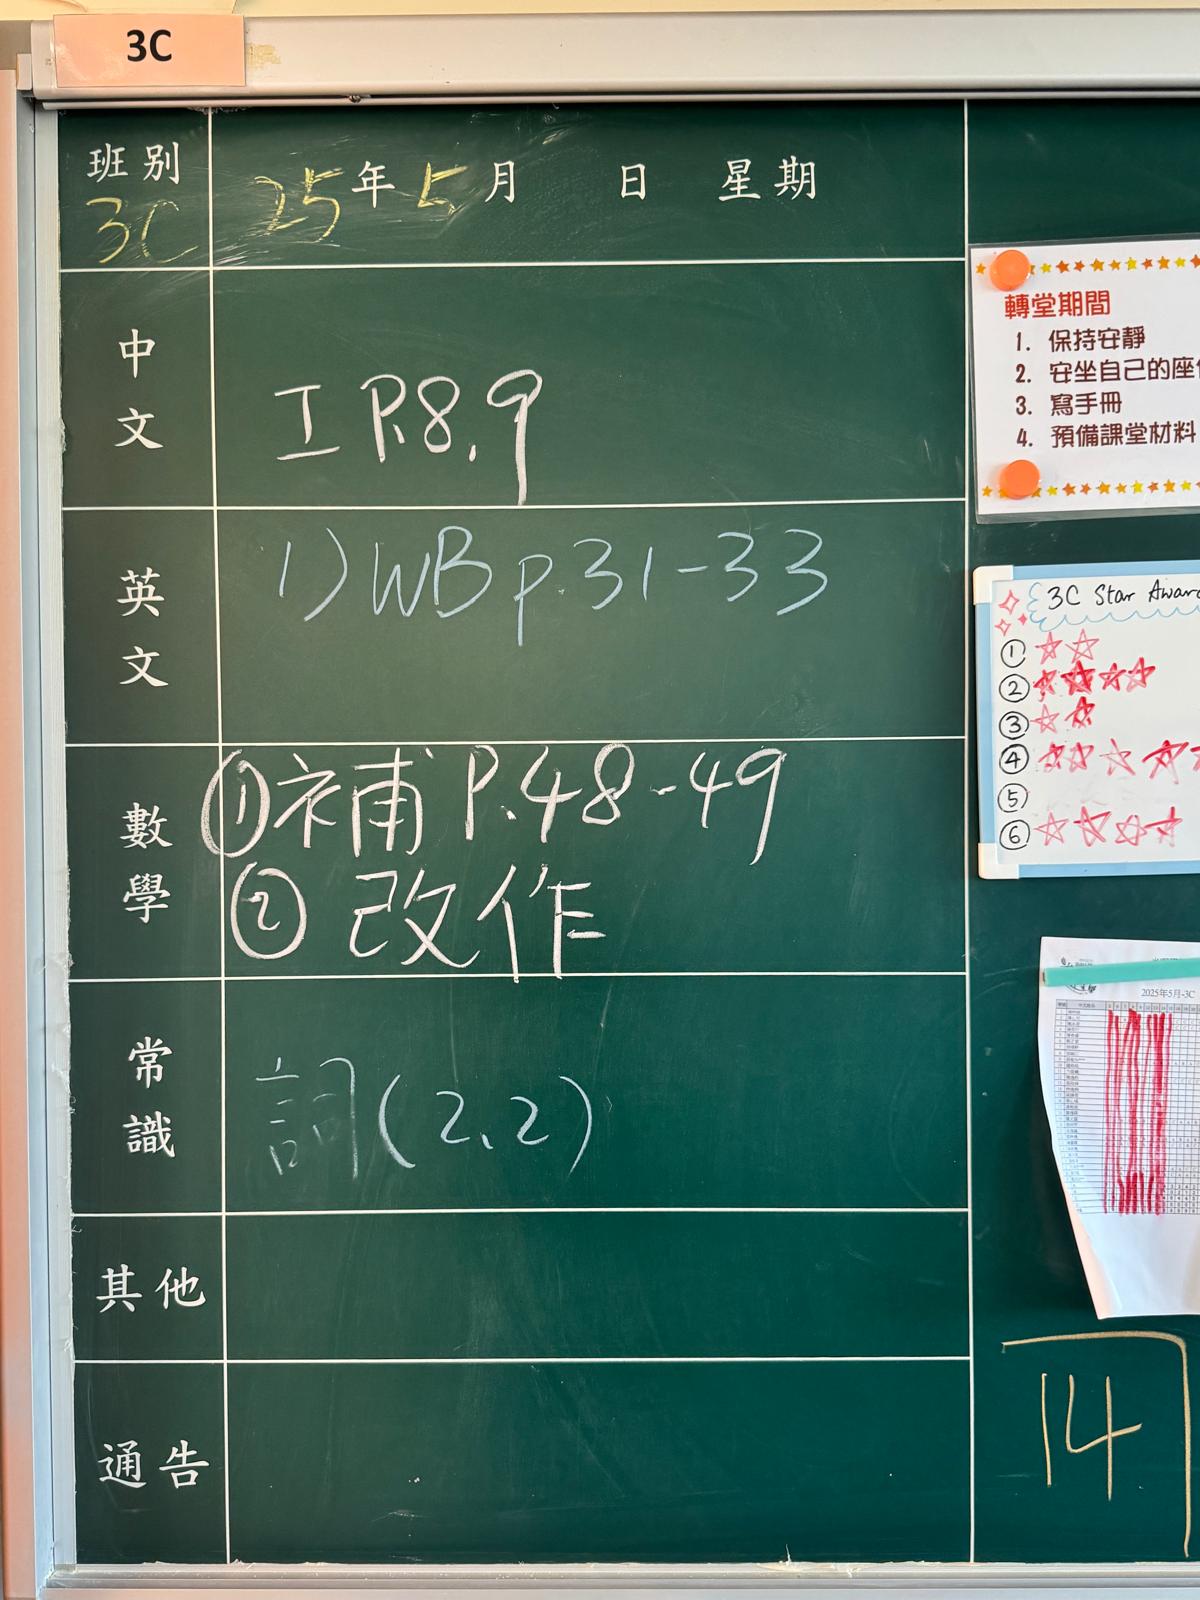 3C
班別
3C
25年5月 日 星期
中文
工 P.8,9
英文
1) WB p.31-33
數學
① 補 P.48-49
② 改作
常識
詞(2.2)
其他
通告
轉堂期間
1. 保持安靜
2. 安坐自己的座
3. 寫手冊
4. 預備課堂材料
3C Star Awar
①
②
③
④
⑤
⑥
2025年5月-3C
14